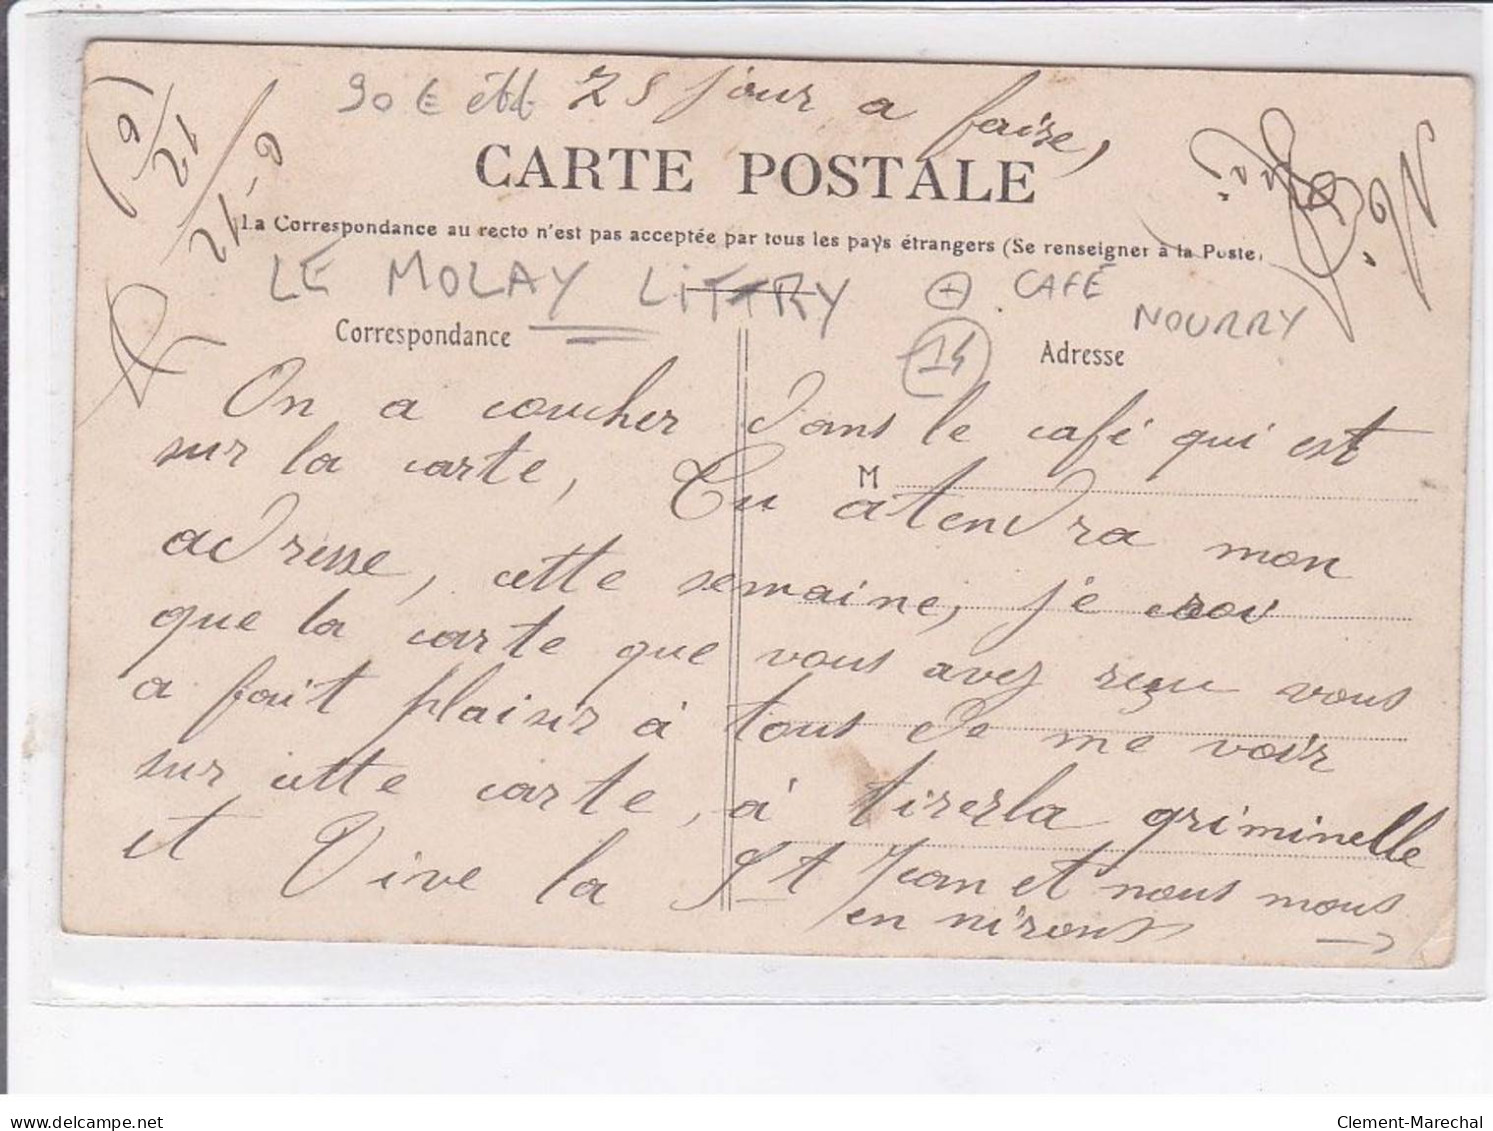 90 € ébt 25 jour a faire,
CARTE POSTALE
La Correspondance au recto n'est pas acceptée par tous les pays étrangers (Se renseigner à la Poste)
LE MOLAY LITTRY CAFÉ
NOURRY
14
Correspondance Adresse
On a coucher dans le café qui est
sur la carte, Tu atendra mon
M
adresse, cette semaine, je croi
que la carte que vous avez reçu vous
a fait plaisir à tous de me voir
sur cette carte, à tirerla griminelle
et Vive la St Jean et nous nous
en nirons
delcampe.net
Clement-Marechal